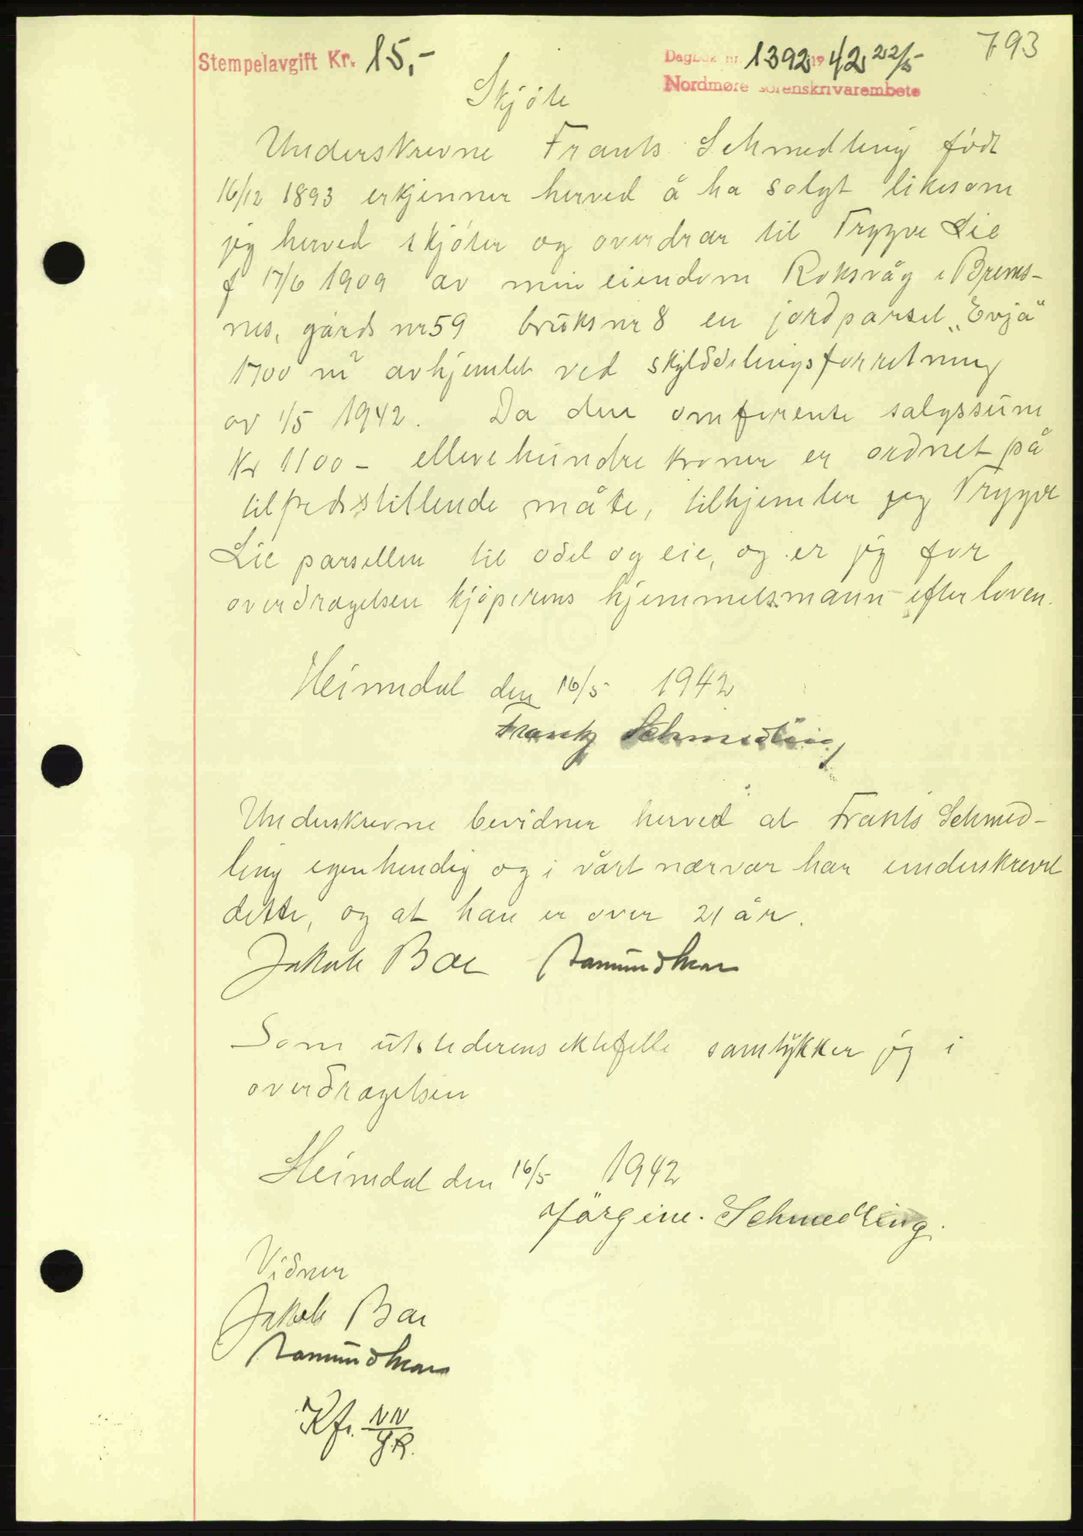 793
Stempelavgift Kr. 15,-
Dagbok nr. 1392 19 42 22/5
Nordmøre sorenskrivarembete
Skjøte
Underskrevne Frants Schmedling født
16/12 1893 erkjenner herved å ha solgt likesom
jeg herved skjøter og overdrar til Trygve Lie
f 17/6 1909 av min eiendom Roksvåg i Brems-
nes, gårds nr 59 bruksnr 8 en jordparsel "Evjå"
1700 m² avhjemlet ved skylddelingsforretning
av 1/5 1942. Da den omforente salgssum
Kr 1100 - ellevehundre kroner er ordnet på
tilfredsstillende måte, tilhjemler jeg Trygve
Lie parsellen til odel og eie, og er jeg for
overdragelsen kjøperens hjemmelsmann efter loven.
Heimdal den 16/5 1942
Frantz Schmedling
Underskrevne bevidner herved at Frants Schmed-
ling egenhendig og i vårt nærvær har underskrevet
dette, og at han er over 21 år.
Jakob Boe
Som utstederens ektefelle samtykker jeg i
overdragelsen
Heimdal den 16/5 1942
Jørgine. Schmedling.
Vidner
Jakob Boe
Kfr. NN
GR.